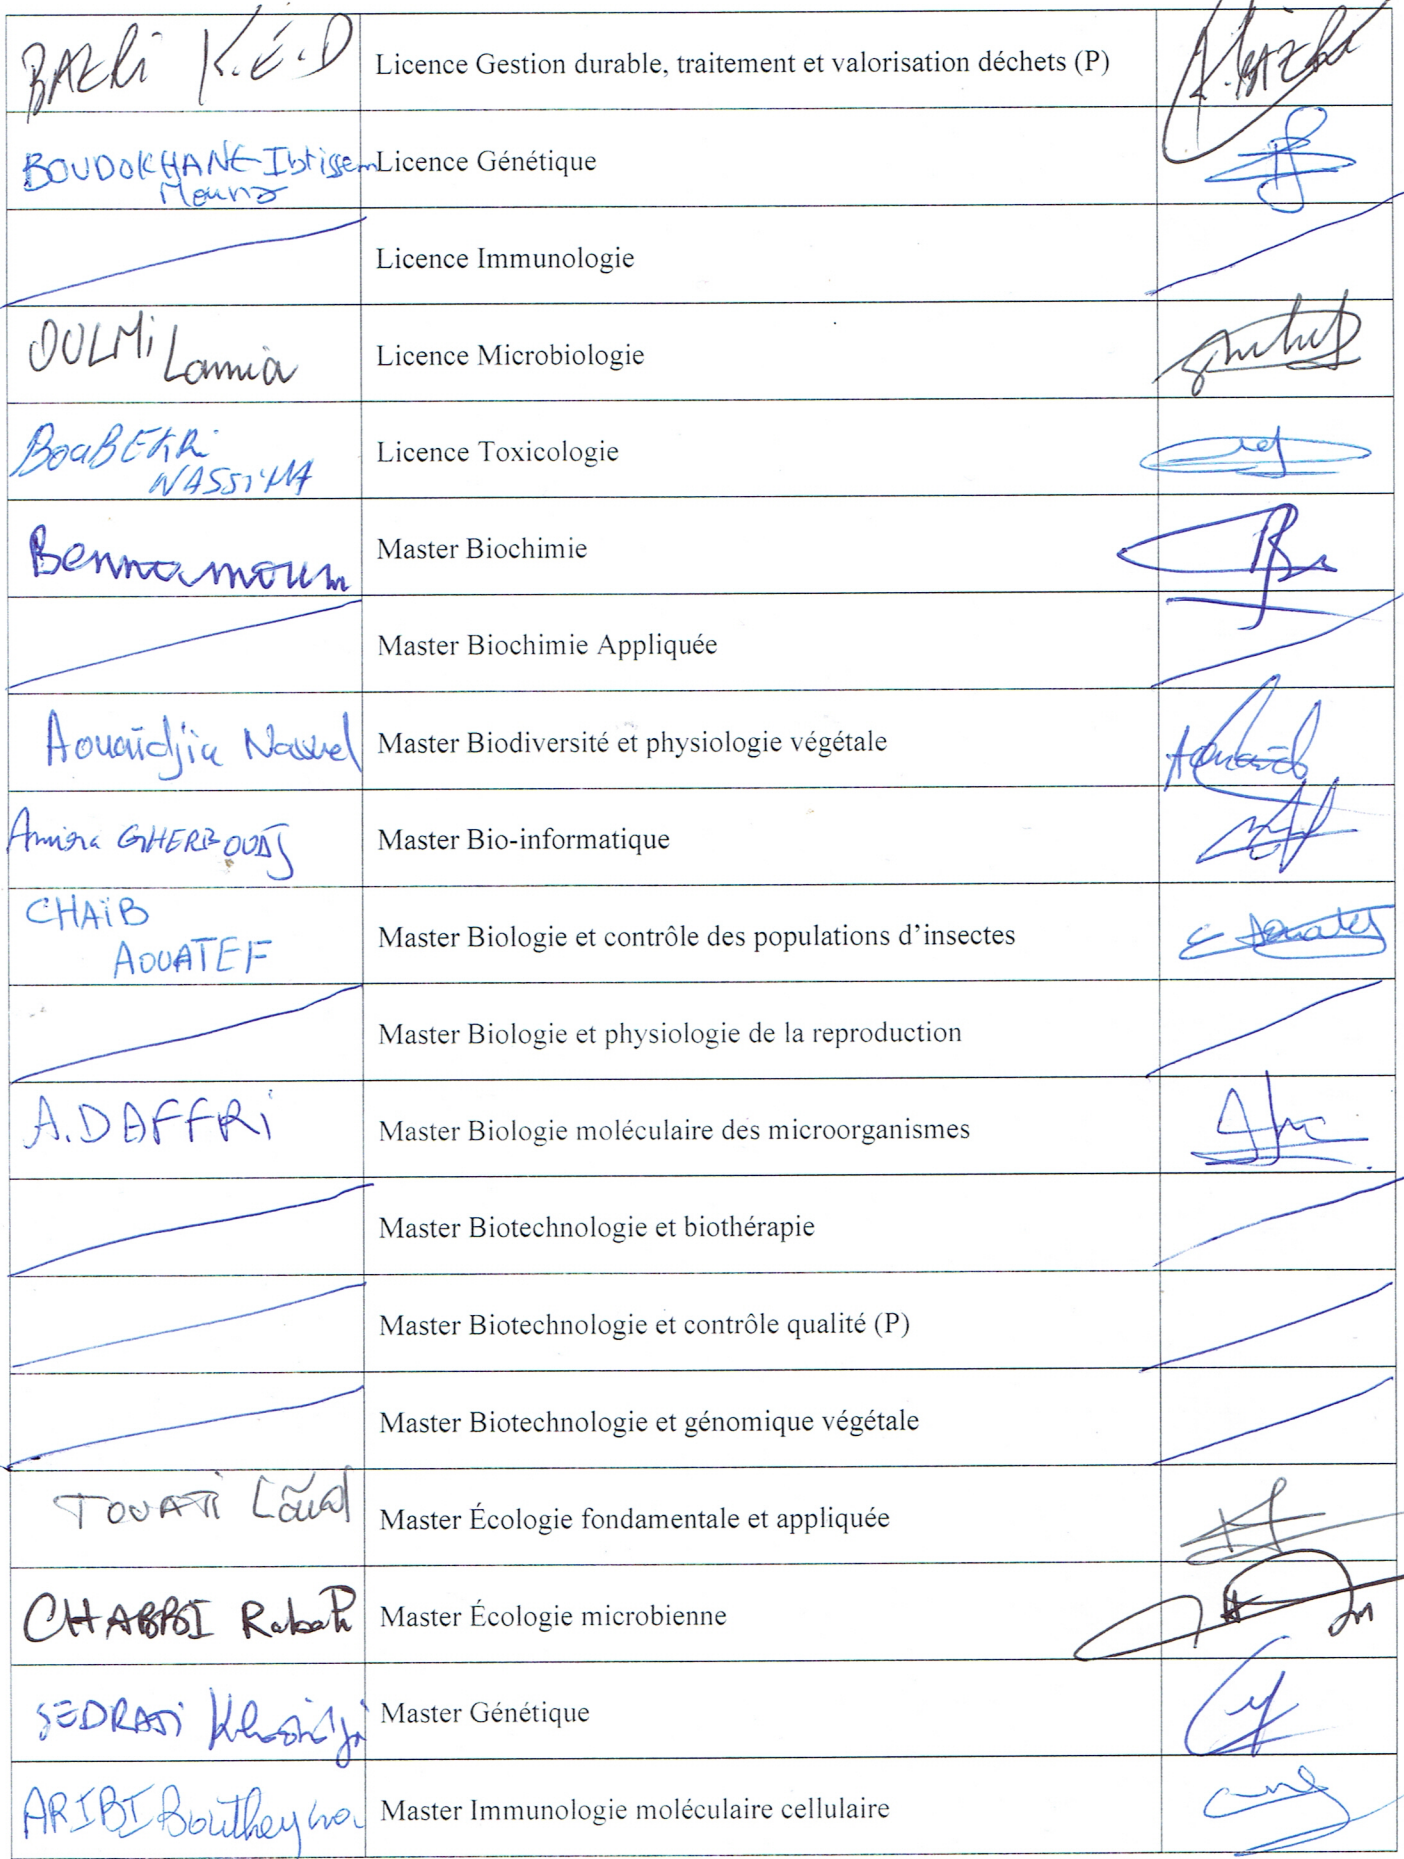 BAZRi K.E.D Licence Gestion durable, traitement et valorisation déchets (P) K.BAZRI
BOUDOKHANE Ibtissem Licence Génétique
Mouna
Licence Immunologie
OULMi Lamia Licence Microbiologie
BouBEKRi Licence Toxicologie
NASSiMA
Bennamoun Master Biochimie
Master Biochimie Appliquée
Aouaïdjia Nawel Master Biodiversité et physiologie végétale
Amira GHERBOUDJ Master Bio-informatique
CHAïB Master Biologie et contrôle des populations d’insectes
AOUATEF
Master Biologie et physiologie de la reproduction
A.DAFFRi Master Biologie moléculaire des microorganismes
Master Biotechnologie et biothérapie
Master Biotechnologie et contrôle qualité (P)
Master Biotechnologie et génomique végétale
TOUATi Master Écologie fondamentale et appliquée
CHABBI Rabah Master Écologie microbienne
SEDRATi Master Génétique
ARIBI Boutheyna Master Immunologie moléculaire cellulaire